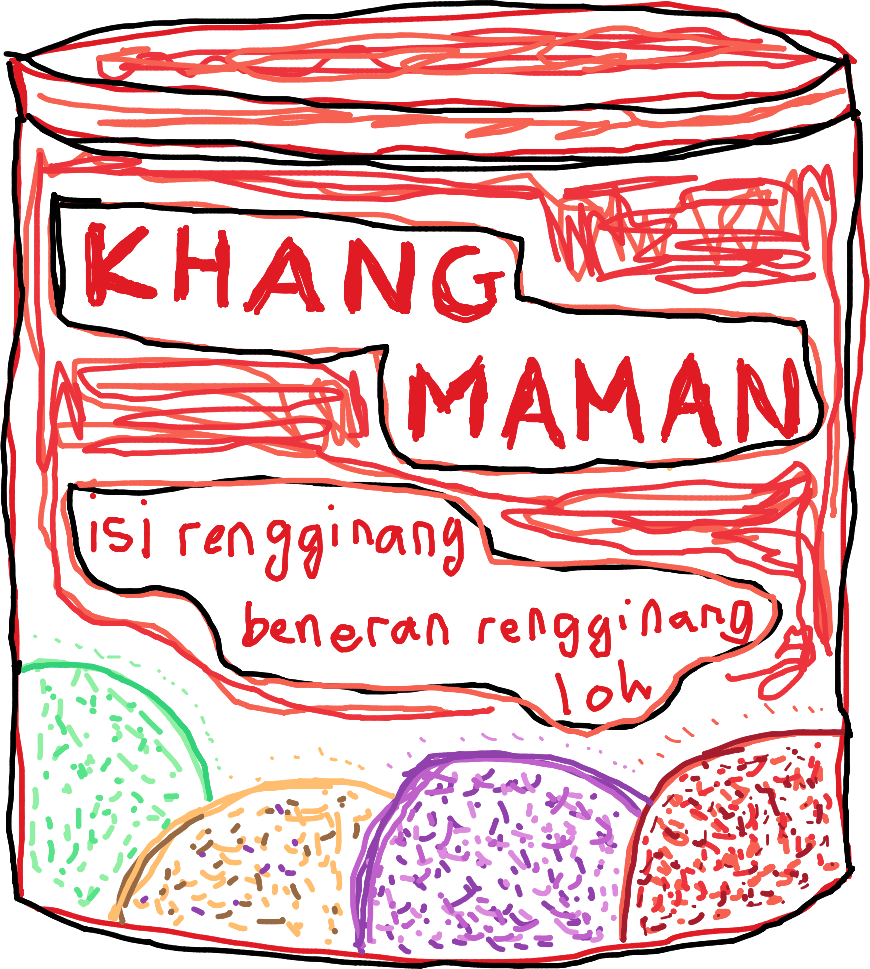 KHANG
MAMAN
isi rengginang
beneran rengginang
loh